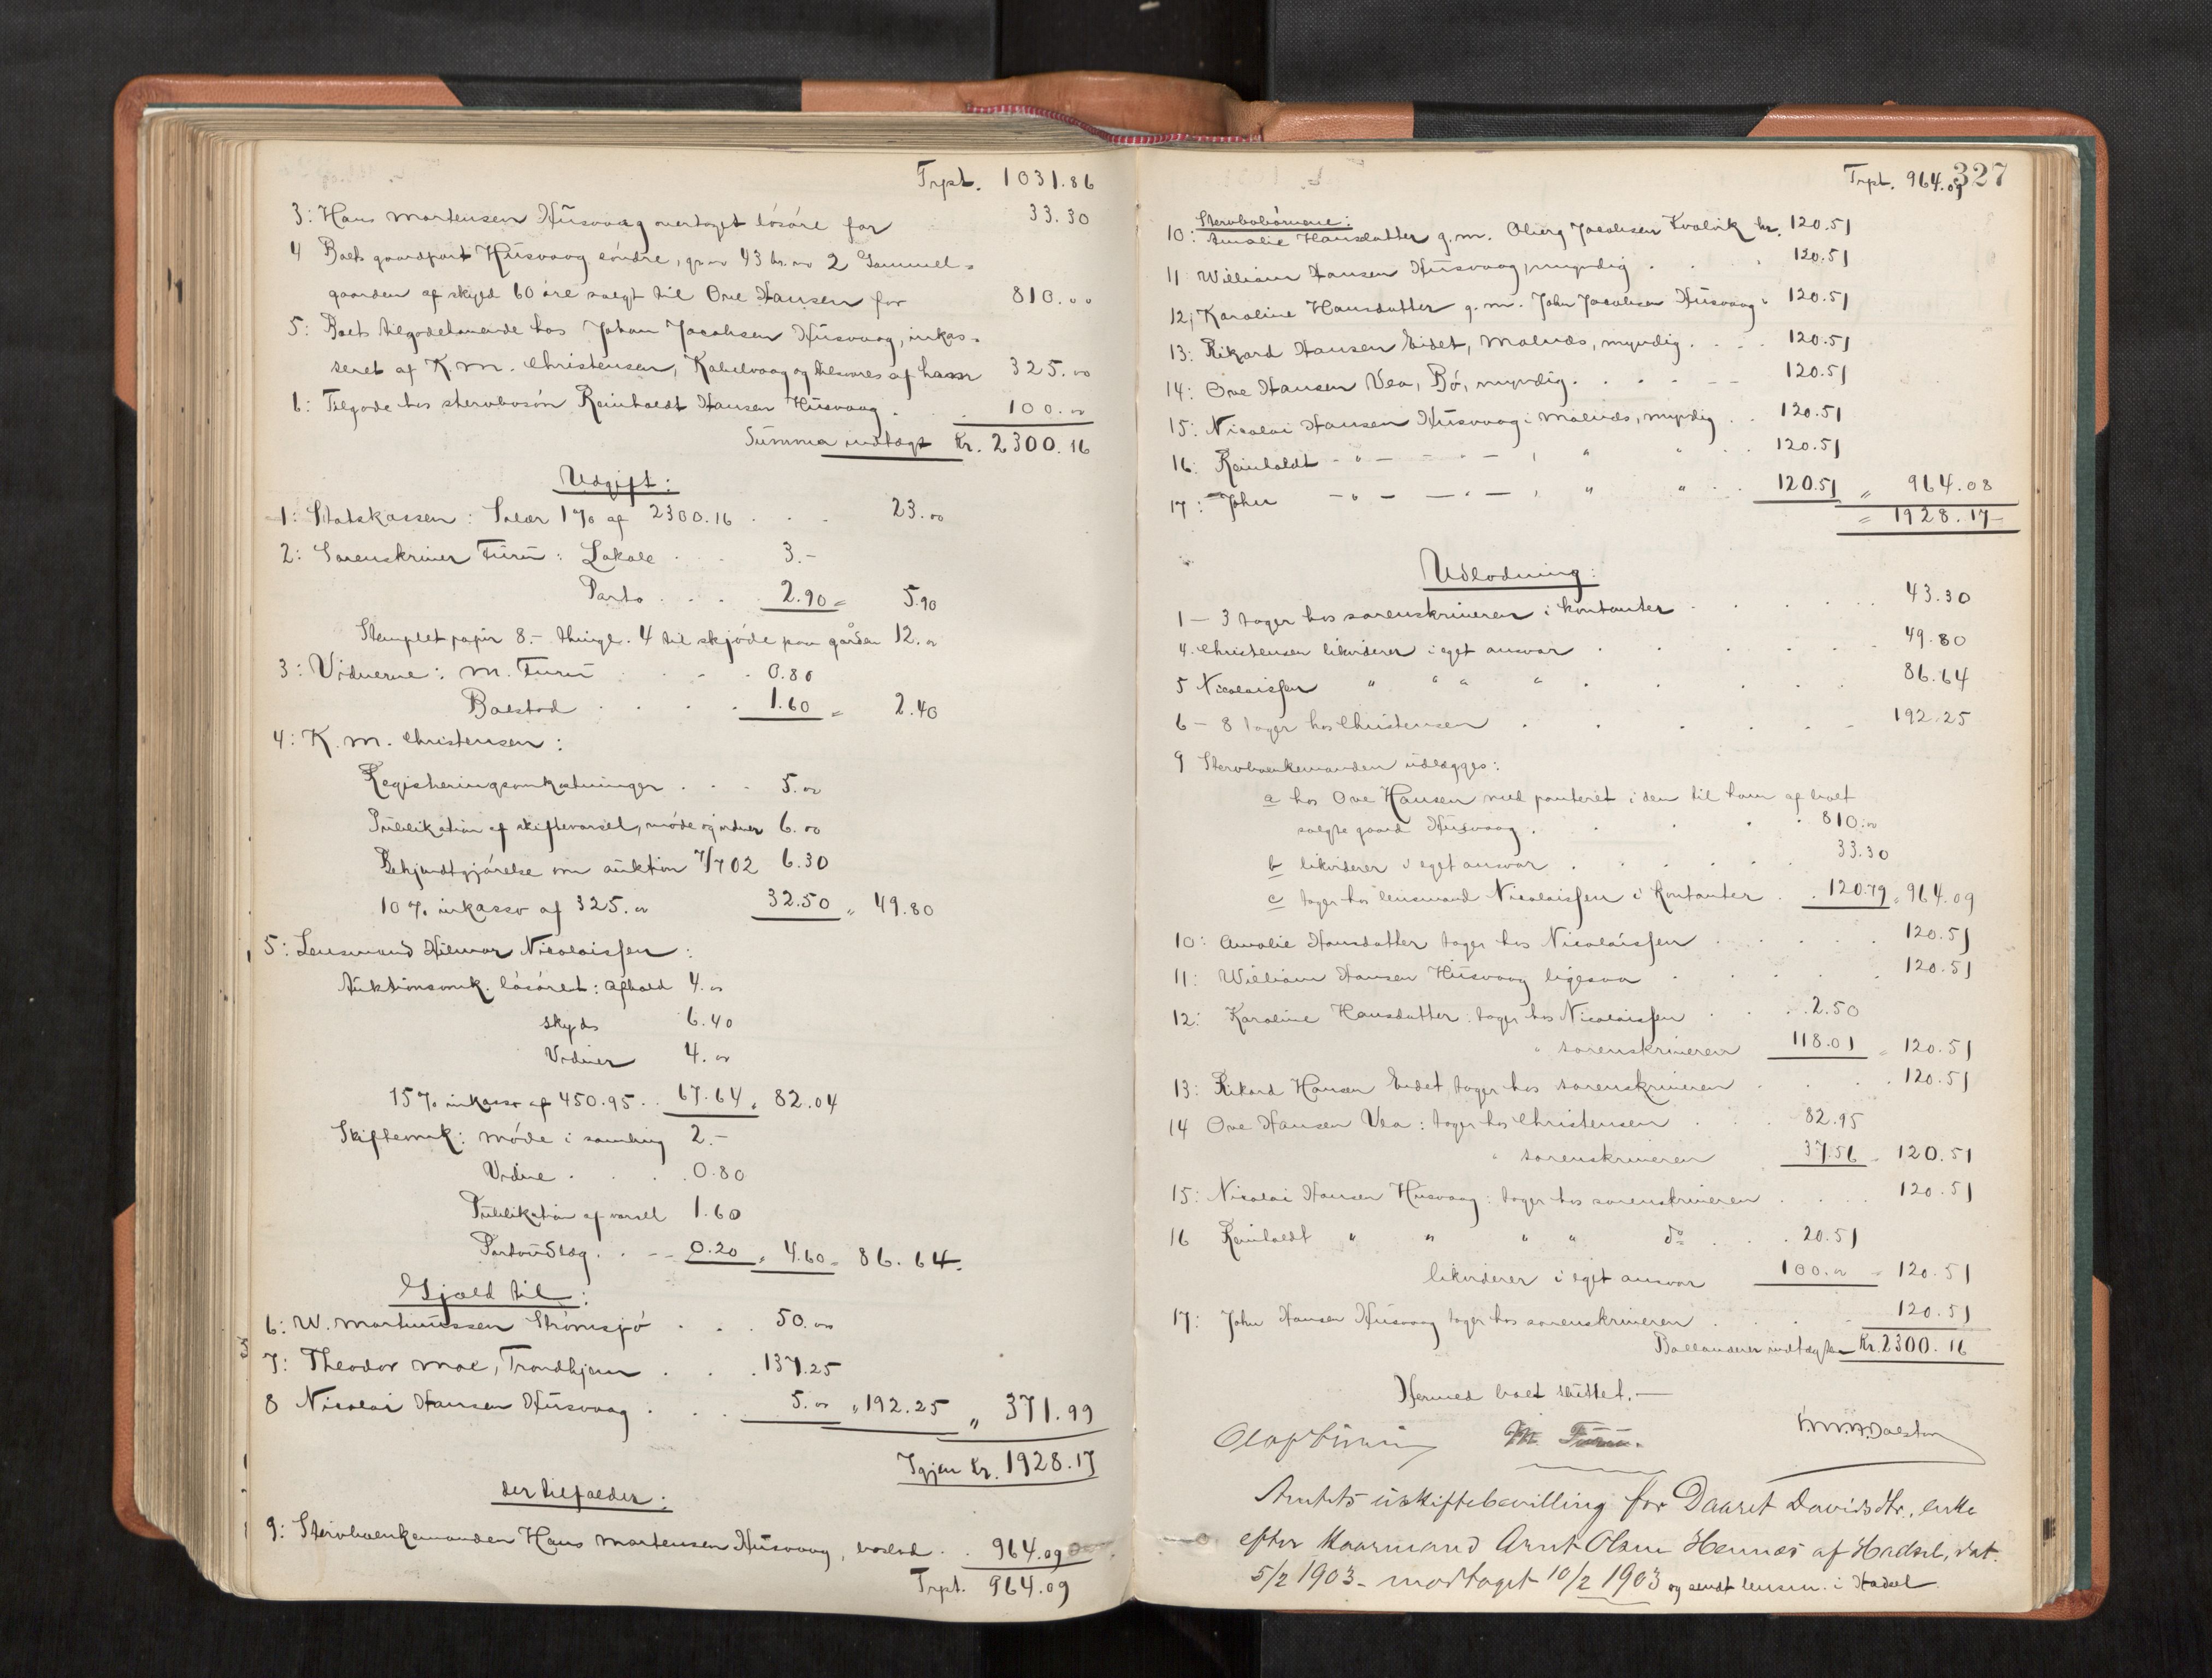 Trpt. 1031.86
3: Hans Martensen Husvaag overtaget løsøre for 33.30
4 Boets gaardpart Husvaag søndre, gr. no 43 br. no 2 Gammel-
gaarden af skyld 60 øre solgt til Ove Hansen for 810.00
5: Boets tilgodehavende hos Johan Jacobsen Husvaag, inkas-
seret af K. M. Christensen, Kabelvaag og tilsvares af ham 325.00
6: Tilgode hos stervbosøn Reinholdt Hansen Husvaag . . 100.00
Summa indtægt Kr. 2300.16
Udgift:
1: Statskassen: Salær 1% af 2300.16 . . . 23.00
2: Sorenskriver Furu: Lokale . . 3.-
Porto . . . 2.90 = 5.90
Stemplet papir 8.- thingl. 4 til skjøde paa gården 12.00
3: Vidnerne: M. Furu . . . 0.80
Balstad . . . . 1.60 = 2.40
4: K. M. Christensen:
Registeringsomkostninger . . . 5.00
Publikation af skiftevarsel, møde og vidner 6.00
Bekjendtgjørelse om auktion 7/7 02 6.30
10% inkasso af 325.00 32.50 " 49.80
5: Lensmand Hilmar Nicolaissen:
Auktionsomk. løsøret: afhold 4.00
skyds 6.40
Vidner 4.00
15% inkasso af 450.95 . . 67.64 " 82.04
Skifteomk: møde i samling 2.-
Vidne . . . 0.80
Publikation af varsel 1.60
Portoudlæg . . -- 0.20 " 4.60 = 86.64.
Gjæld til:
6: W. Martinussen Strømsjø . . . 50.00
7: Theodor Moe, Trondhjem . . . 137.25
8 Nicolai Hansen Husvaag . . . 5.00 " 192.25 " 371.99
Igjen Kr. 1928.17
der tilfalder:
9: Stervboenkemanden Hans Martensen Husvaag, boslod . . 964.09
Trpt. 964.09
327
Trpt. 964.09
Stervbobørnene:
10: Amalie Hansdatter g. m. Oluf Jacobsen Kvalvik kr. 120.51
11: William Hansen Husvaag, myndig . . . 120.51
12: Karoline Hansdatter g. m. John Jacobsen Husvaag " 120.51
13: Rikard Hansen Eidet, Malnæs, myndig . . . 120.51
14: Ove Hansen Vea, Bø, myndig . . . . -- 120.51
15: Nicolai Hansen Husvaag i Malnæs, myndig . . 120.51
16: Reinholdt - " - - " - , " " . . 120.51
17: John - " - - " - , " " . . 120.51 " 964.08
= 1928.17
Udlodning:
1 - 3 tager hos sorenskriveren i kontanter . . . . . 43.30
4. Christensen likviderer i eget ansvar . . . . . 49.80
5 Nicolaissen " " " " . . . . . 86.64
6 - 8 tager hos Christensen . . . . . 192.25
9 Stervboenkemanden udlægges:
a hos Ove Hansen med panteret i den til ham af boet
solgte gaard Husvaag . . . . 810.00
b likviderer i eget ansvar . . . . 33.30
c tager hos lensmand Nicolaissen i kontanter . . 120.79 " 964.09
10: Amalie Hansdatter tager hos Nicolaissen . . . . . 120.51
11: William Hansen Husvaag ligesaa . . . . . 120.51
12: Karoline Hansdatter: tager hos Nicolaissen . . . 2.50
" sorenskriveren 118.01 = 120.51
13: Rikard Hansen Eidet tager hos sorenskriveren . . . . 120.51
14 Ove Hansen Vea: tager hos Christensen . . . 82.95
" sorenskriveren 37.56 = 120.51
15: Nicolai Hansen Husvaag: tager hos sorenskriveren . . . . 120.51
16 Reinholdt " " " " do . . . 20.51
likviderer i eget ansvar 100.00 = 120.51
17: John Hansen Husvaag tager hos sorenskriveren . . . . 120.51
Ballancerer indtægten Kr. 2300.16
Hermed boet sluttet. —
M. Furu.
Amtets uskiftebevilling for Daaret Davidsdtr., enke
efter Kaarmand Arnt Olsen Hennes af Hadsel, dat.
5/2 1903 - modtaget 10/2 1903 og sendt lensm. i Hadsel.